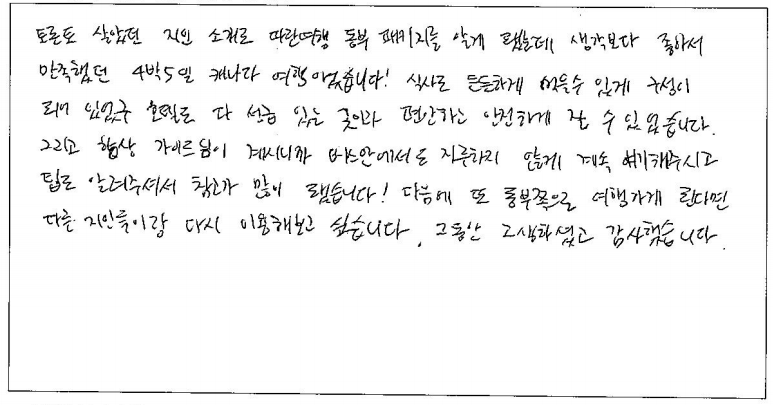 토론토 살았던 지인 소개로 파란여행 동부 패키지를 알게 됐는데 생각보다 좋아서
만족했던 4박5일 캐나다 여행이었습니다! 식사도 든든하게 먹을수 있게 구성이
되어 있었구 호텔도 다 선급 있는 곳이라 편안하고 안전하게 잘 수 있었습니다.
그리고 항상 가이드님이 계시니까 버스안에서도 지루하지 않게 계속 얘기해주시고
팁도 알려주셔서 참고가 많이 됐습니다! 다음에 또 동부쪽으로 여행가게 된다면
다른 지인들이랑 다시 이용해보고 싶습니다. 그동안 고생하셨고 감사했습니다